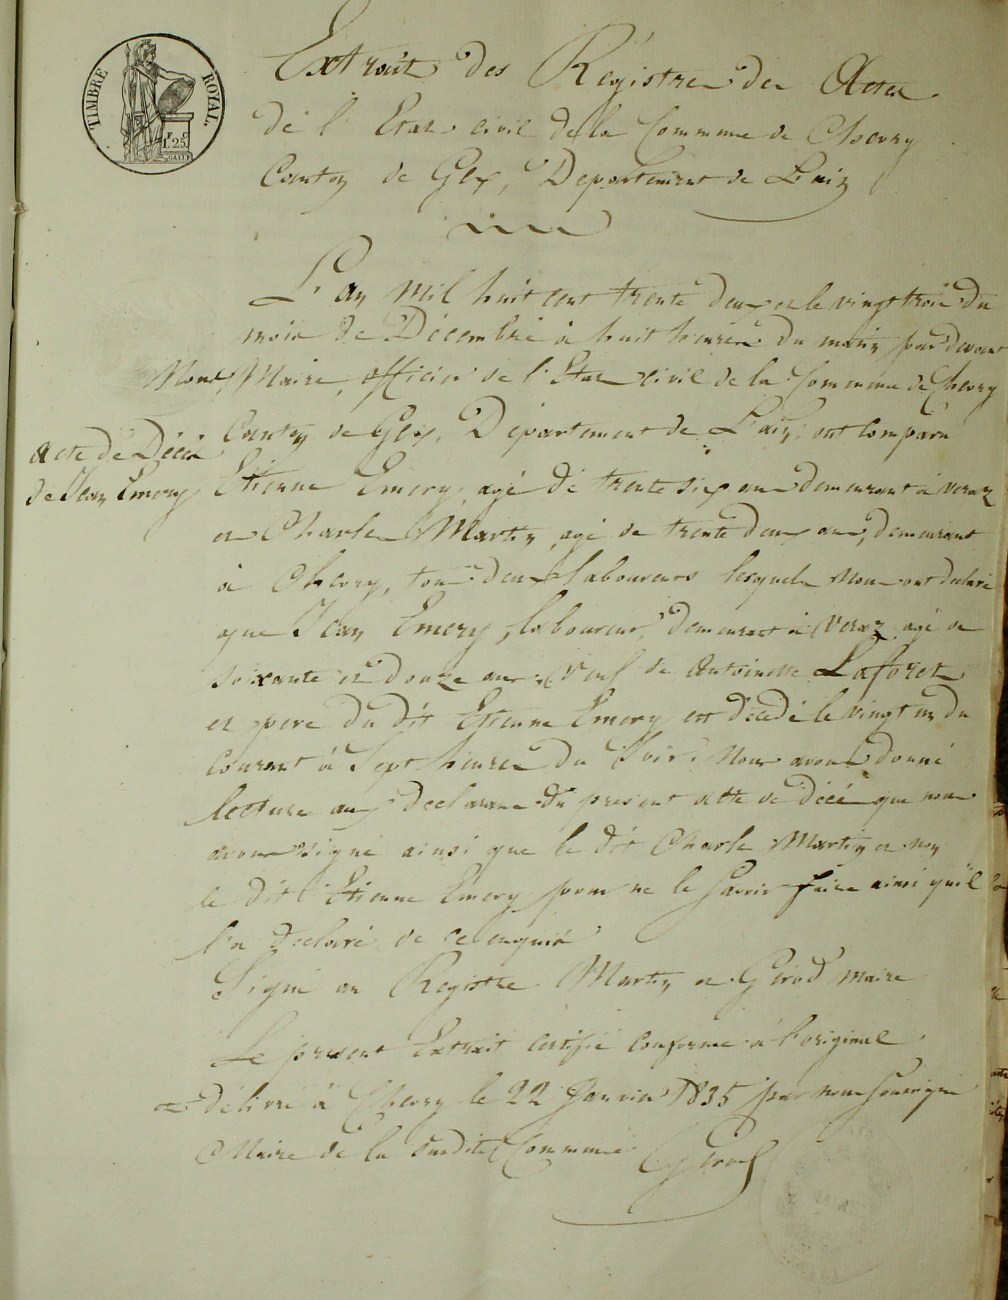 TIMBRE ROYAL.
F. C.
1. 25.
Extrait des Régistres des Actes
de l'Etat civil de la Commune de Chevry
Canton de Gex, Département de L'ain
L'an mil huit cent trente deux et le vingt trois du
mois de Décembre à huit heures du matin par devant
Nous Maire, officier de l'Etat civil de la Commune de Chevry
Canton de Gex, Département de L'ain, ont Comparu
Acte de Décès
de Jean Emery
Etienne Emery agé de trente six ans demeurant à veraz
et Charles Martin, agé de trente deux ans, demeurant
à Chevry, tous deux laboureurs lesquels Nous ont declaré
que Jean Emery, laboureur, demeurant à Veraz agé de
soixante et douze ans, Veuf de Antoinette Laforet
et pere du dit Etienne Emery est décédé le vingt un du
Courant à Sept heures du Soir. Nous avons donné
lecture aux declarans du present acte de décè que nous
avons signé ainsi que le dit Charle Martin et non
le dit Etienne Emery pour ne le savoir faire ainsi qu'il
l'a declaré de ce enquis
Signé au Registre Martin et Girod maire
Le present Extrait certifié conforme à l'original
délivré à Chevry le 22 Janvier 1835 par nous soussigné
Maire de la susdite Commune Girod